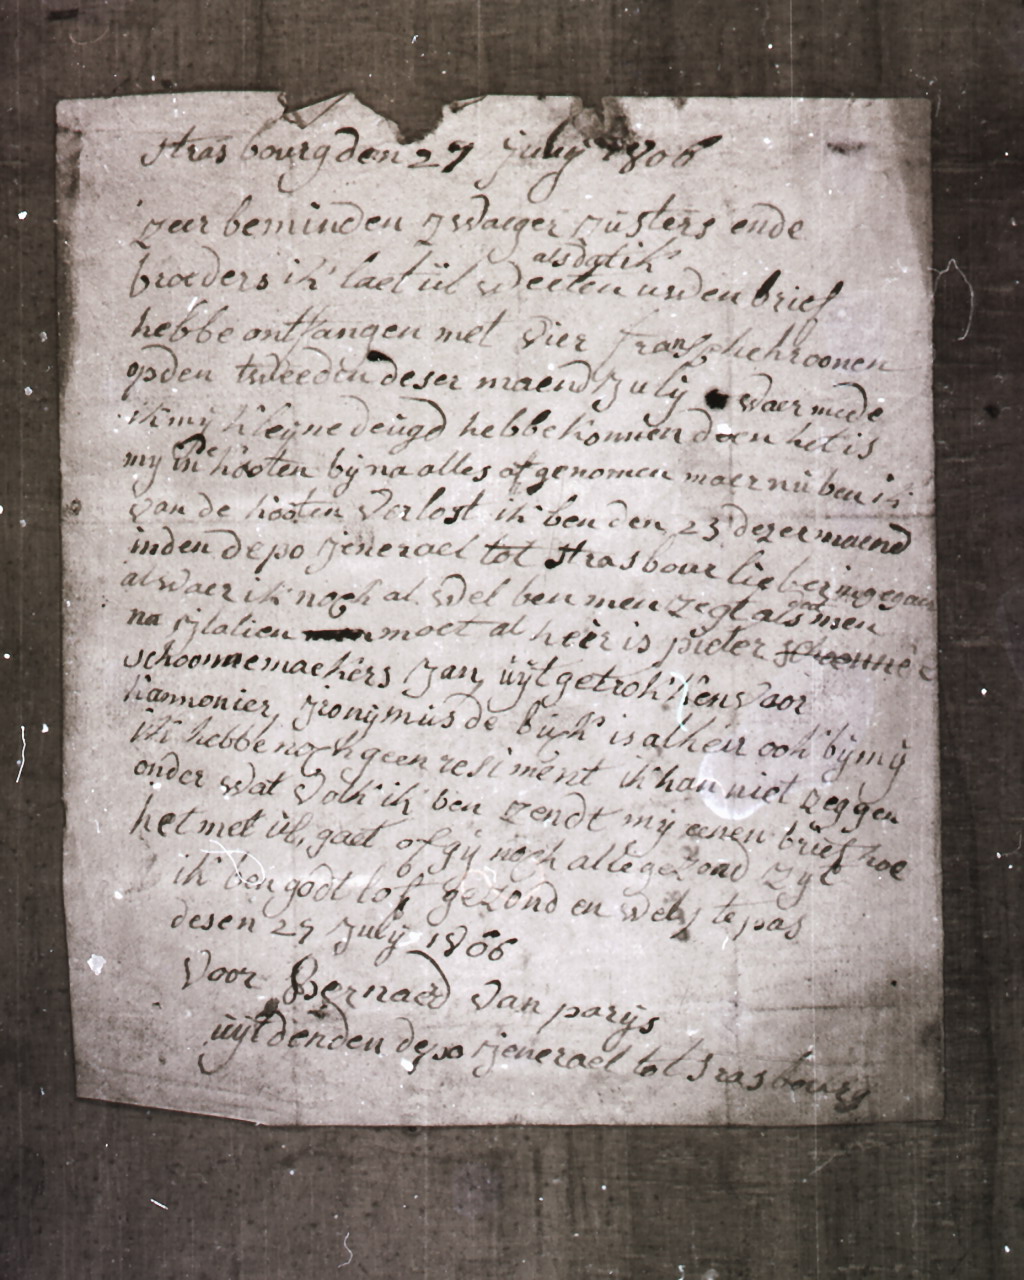 stras bourg den 27 july 1806
zeer beminden zwaeger zusters ende
alsdat ik
broeders ik laet ul weeten uwden brief
hebbe ontfangen met vier fransche kroonen
op den tweeden deser maend july waer mede
ik my kleyne deugd hebbe konnen doen het is
my in de kooten byna alles afgenomen maer nu ben ik
van de kooten verlost ik ben den 23 dezer maend
inden depo jenerael tot strasbour
alwaer ik noch al wel ben men zegt als men
na ijtalien moet al heir is pieter schoenne
schoonnemaekers jan, uijtgetrokken voor
kannonier, jronijmus de buck is alheir ook bij mij
ik hebbe noch geen resiment ik kan niet zeggen
onder wat volk ik ben zendt mij eenen brief hoe
het met ul, gaet of gij noch alle gezond zijt
ik ben godt lof gezond en wel te pas
desen 27 july 1806
voor Bernaerd van parijs
uijt denden depo jenerael tot strasbourg